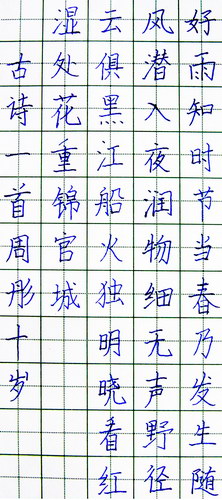 好雨知时节当春乃发生随
风潜入夜润物细无声野径
云俱黑江船火独明晓看红
湿处花重锦官城
古诗一首周彤十岁